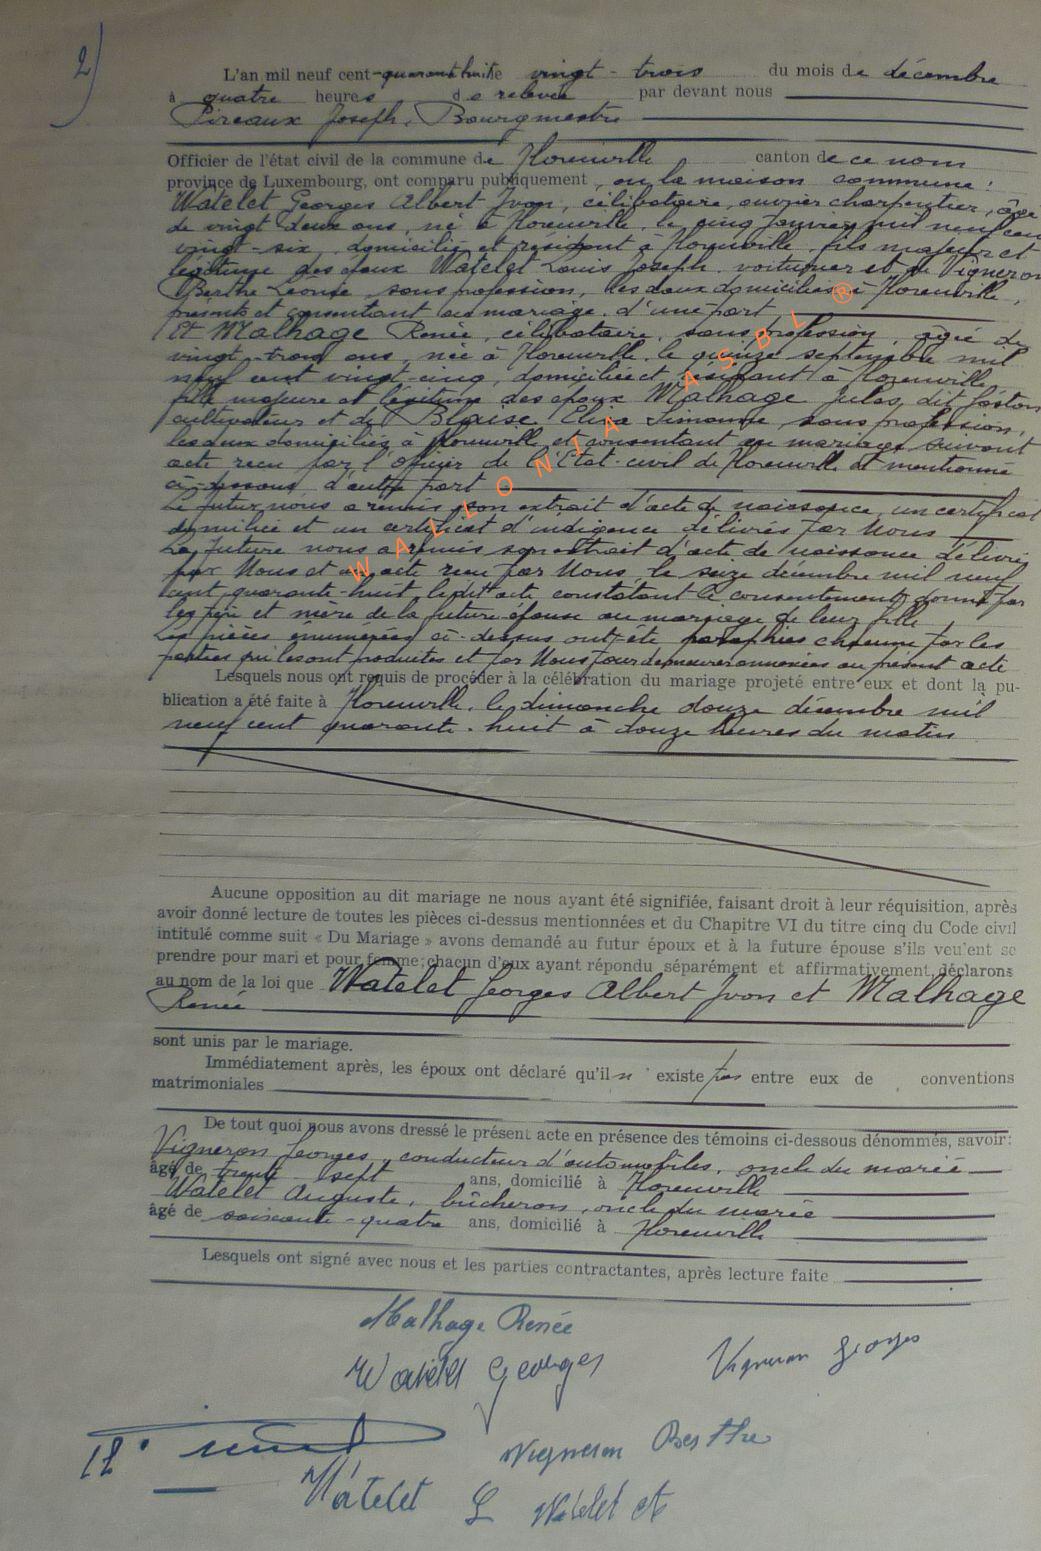 2)
L'an mil neuf cent-quarante huit le vingt-trois du mois de décembre
à quatre heures de relevée par devant nous
Pireaux Joseph, Bourgmestre
Officier de l'état civil de la commune de Horenville canton de ce nom
province de Luxembourg, ont comparu publiquement, en la maison commune:
Watelet Georges Albert Yvon, célibataire, ouvrier charpentier, âgé
de vingt deux ans, né à Horenville, le cinq janvier mil neuf cent
vingt-six, domicilié et résidant à Horenville, fils majeur et
légitime des époux Watelet Louis Joseph, voiturier et de Vigneron
Berthe Léonie sans profession, les deux domiciliés à Horenville,
présents et consentant au mariage, d'une part
Et Malhage Renée, célibataire, sans profession, agée de
vingt-trois ans, née à Horenville, le quinze septembre mil
neuf cent vingt-cinq, domiciliée et résidant à Horenville,
fille majeure et légitime des époux Malhage Jules, dit Gaston
cultivateur et de Blaise Elisa Simonne, sans profession,
les deux domiciliés à Horenville et consentant au mariage suivant
acte reçu par l'officier de l'Etat-civil de Horenville et mentionné
ci-dessous d'autre part
Le futur nous a remis son extrait d'acte de naissance, un certificat
de milice et un certificat d'indigence délivrés par Nous
La future nous a remis son extrait d'acte de naissance délivré
par Nous et un acte reçu par Nous, le seize décembre mil neuf
cent quarante-huit, le dit acte constatant le consentement donné par
les père et mère de la future épouse au mariage de leur fille
Les pièces énumérées ci-dessus ont été paraphées chacune par les
parties qui les ont produites et par Nous pour demeurer annexées au présent acte
Lesquels nous ont requis de procéder à la célébration du mariage projeté entre eux et dont la pu-
blication a été faite à Horenville, le dimanche douze décembre mil
neuf cent quarante-huit à douze heures du matin
Aucune opposition au dit mariage ne nous ayant été signifiée, faisant droit à leur réquisition, après
avoir donné lecture de toutes les pièces ci-dessus mentionnées et du Chapitre VI du titre cinq du Code civil
intitulé comme suit « Du Mariage » avons demandé au futur époux et à la future épouse s'ils veulent se
prendre pour mari et pour femme; chacun d'eux ayant répondu séparément et affirmativement, déclarons
au nom de la loi que Watelet Georges Albert Yvon et Malhage
Renée
sont unis par le mariage.
Immédiatement après, les époux ont déclaré qu'il n'existe pas entre eux de conventions
matrimoniales
De tout quoi nous avons dressé le présent acte en présence des témoins ci-dessous dénommés, savoir:
Vigneron Georges, conducteur d'automobiles, oncle du marié
âgé de trente sept ans, domicilié à Horenville
Watelet Auguste, bûcheron, oncle du marié
âgé de soixante-quatre ans, domicilié à Horenville
Lesquels ont signé avec nous et les parties contractantes, après lecture faite
Malhage Renée
Watelet Georges
Vigneron Georges
Vigneron Berthe
Watelet L
Watelet A
WALLONIA ASBL ®